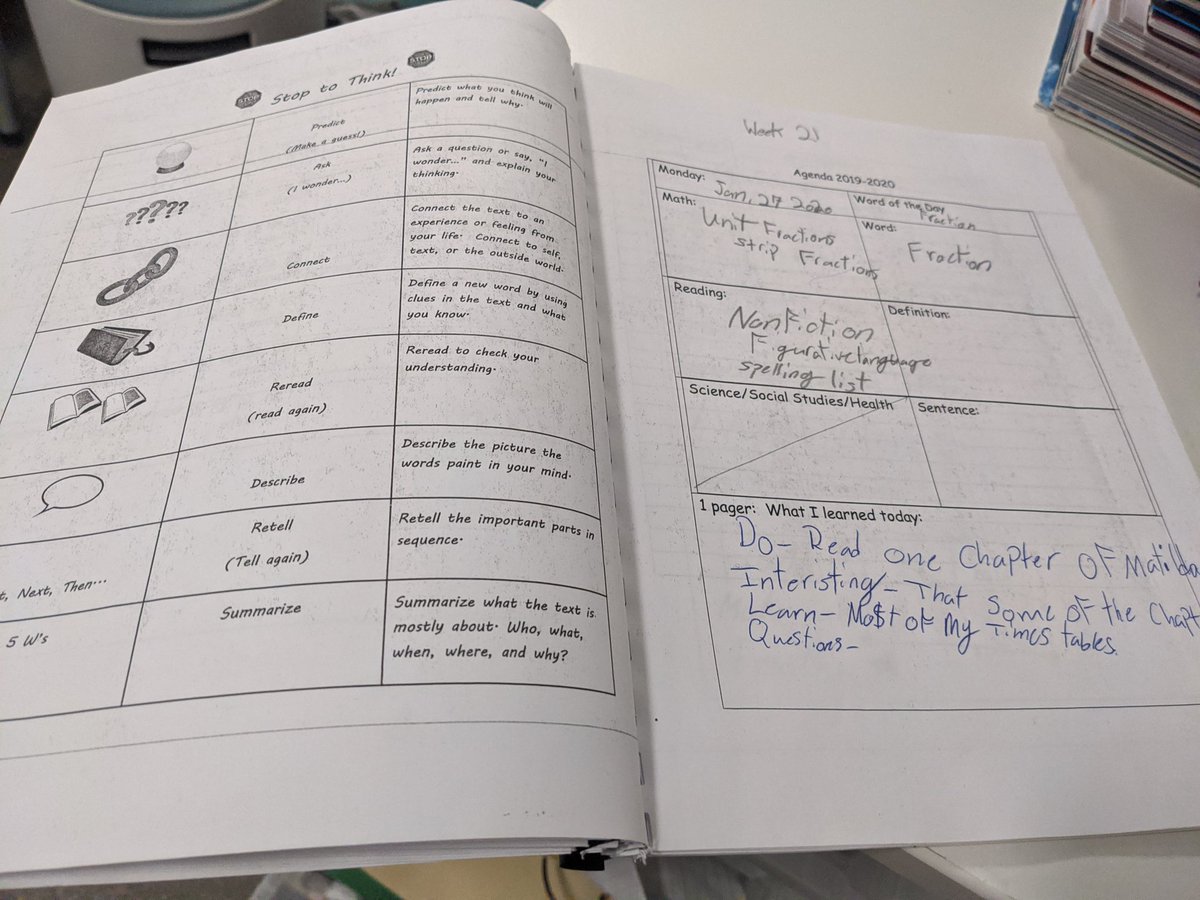 STOP Stop to Think! STOP
Predict
(Make a guess!)
Predict what you think will
happen and tell why.
?????
Ask
(I wonder...)
Ask a question or say, "I
wonder..." and explain your
thinking.
Connect
Connect the text to an
experience or feeling from
your life. Connect to self,
text, or the outside world.
Define
Define a new word by using
clues in the text and what
you know.
Reread
(read again)
Reread to check your
understanding.
Describe
Describe the picture the
words paint in your mind.
Next, Then...
Retell
(Tell again)
Retell the important parts in
sequence.
5 W's
Summarize
Summarize what the text is
mostly about. Who, what,
when, where, and why?
Week 21
Agenda 2019-2020
Monday: Jan, 27 2020
Word of the Day
Fraction
Math:
Unit Fractions
strip Fractions
Word:
Fraction
Reading:
NonFiction
Figurativelanguage
spelling list
Definition:
Science/Social Studies/Health
Sentence:
1 pager: What I learned today:
Do- Read one Chapter OF Matilda
Interisting- That Some of the
Learn- Mo$t of My Times tables.
Questions-